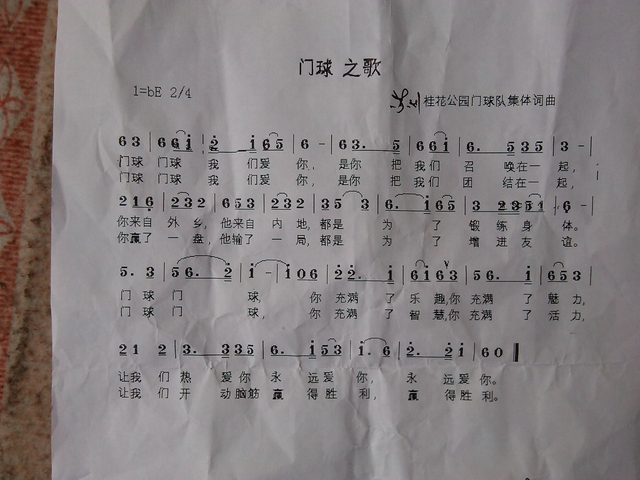 门球 之歌
1=bE 2/4
桂花公园门球队集体词曲
63 | 66i | 2 i 65 | 6 - | 63. 5 | 66i | 6. 535 | 3 - |
门球 门球 我 们爱 你, 是你 把 我们 召 唤在一 起,
门球 门球 我 们爱 你, 是你 把 我们 团 结在一 起,
216 | 232 | 653 | 232 | 35 3 | 6. i65 | 3 2351 | 6 - |
你来自 外 乡, 他来自 内 地, 都是 为 了 锻 练身 体。
你赢了 一 盘, 他输了 一 局, 都是 为 了 增 进友 谊。
5. 3 | 56. 2 | i - | i06 | 22. i | 6i63 | 56. i | 653 |
门 球 门 球, 你 充满 了 乐趣,你 充满 了 魅力,
门 球 门 球, 你 充满 了 智慧,你 充满 了 活力,
21 2 | 3. 335 | 6. i53 | i. 6 | 2. 2i | 60 ‖
让我 们 热 爱你 永 远爱 你, 永 远爱 你。
让我 们 开 动脑筋 赢 得胜 利, 赢 得胜 利。